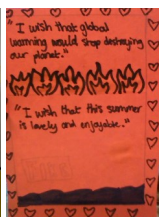 "I wish that global
warming would stop destroying
our planet."
"I wish that this summer
is lovely and enjoyable."